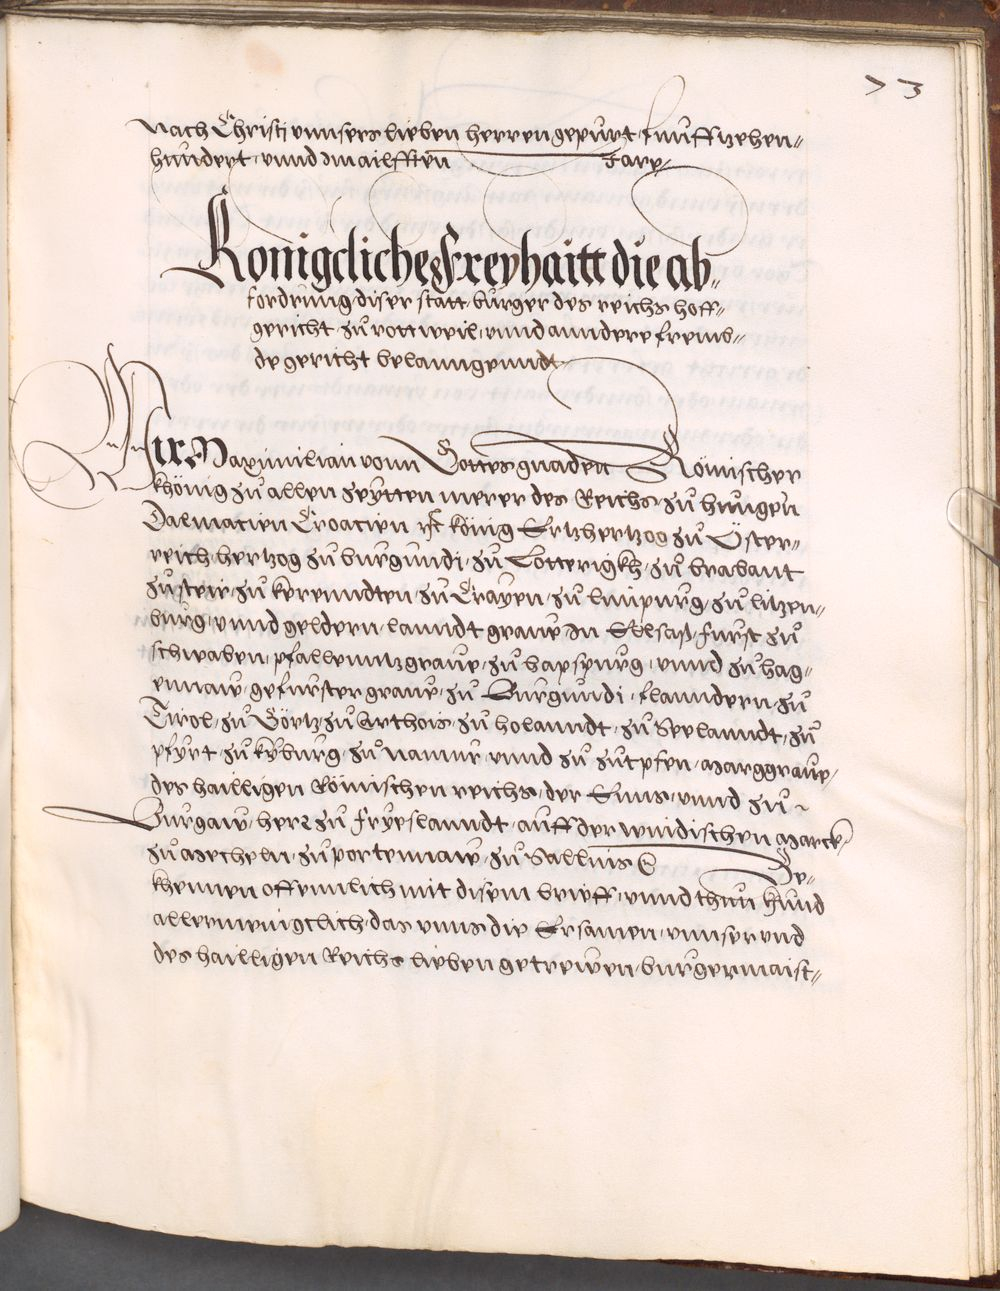 73
nach Christi vnnsers lieben herren gepürt, fünffzehen-
hündert, vnnd im ailfften Jare
Konigcliches Freyhaitt die ab-
fordrüng diser statt bürger des reichs hoff-
gericht, zü rottweil, vnnd annndere fremb-
de gericht belanngenndt
Wir Maximilian vonn Gottes gnaden Römischer
khönig zü allen zeytten merer des Reichs, zü hüngern
Dalmatien Croatien rc König Ertzhertzog zü Öster-
reich hertzog zü bürgündi, zü Lotterigkh, zü brabant
zü steir, zü kerenndten, zü Crayen, zü limpürg, zü litzen-
bürg, vnnd geldern, lanndtgraue in Ellsaß, fürst zü
schwaben, pfallenntzgraue, zü hapspürg, vnnd zü hag-
ennaw, gefürster graue, zü Bürgündi, flanndern, zü
Tirol, zü Görtz, zü Arthois, zü holanndt, zü Seelanndt, zü
pfyrt, zü kybürg, zü namür, vnnd zü zütpfen, marggraue,
des hailligen Römischen reichs, der Enns, vnnd zü
Bürgaw, herr zü fryeslanndt, auff der windischen marck
zü mecheln, zü portennaw, zü Sallins rc Be-
khennen offennlich mit disem brieff, vnnd thün kündt
allermenigclich, das vnns die Ersamen, vnnser vnd
des hailligen Reichs lieben getrewen, bürgermaist-